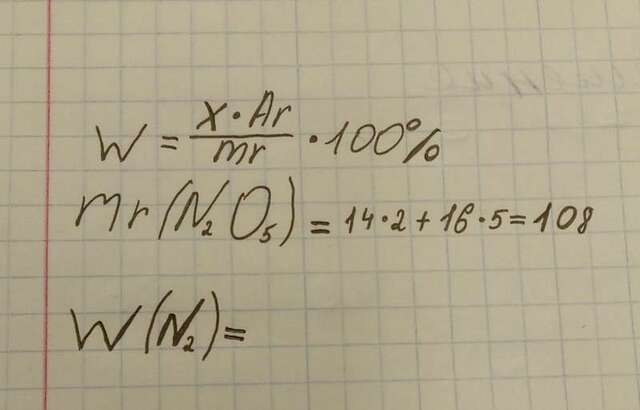 W = x·Ar/mr · 100%
mr(N₂O₅) = 14·2 + 16·5 = 108
W(N₂) =